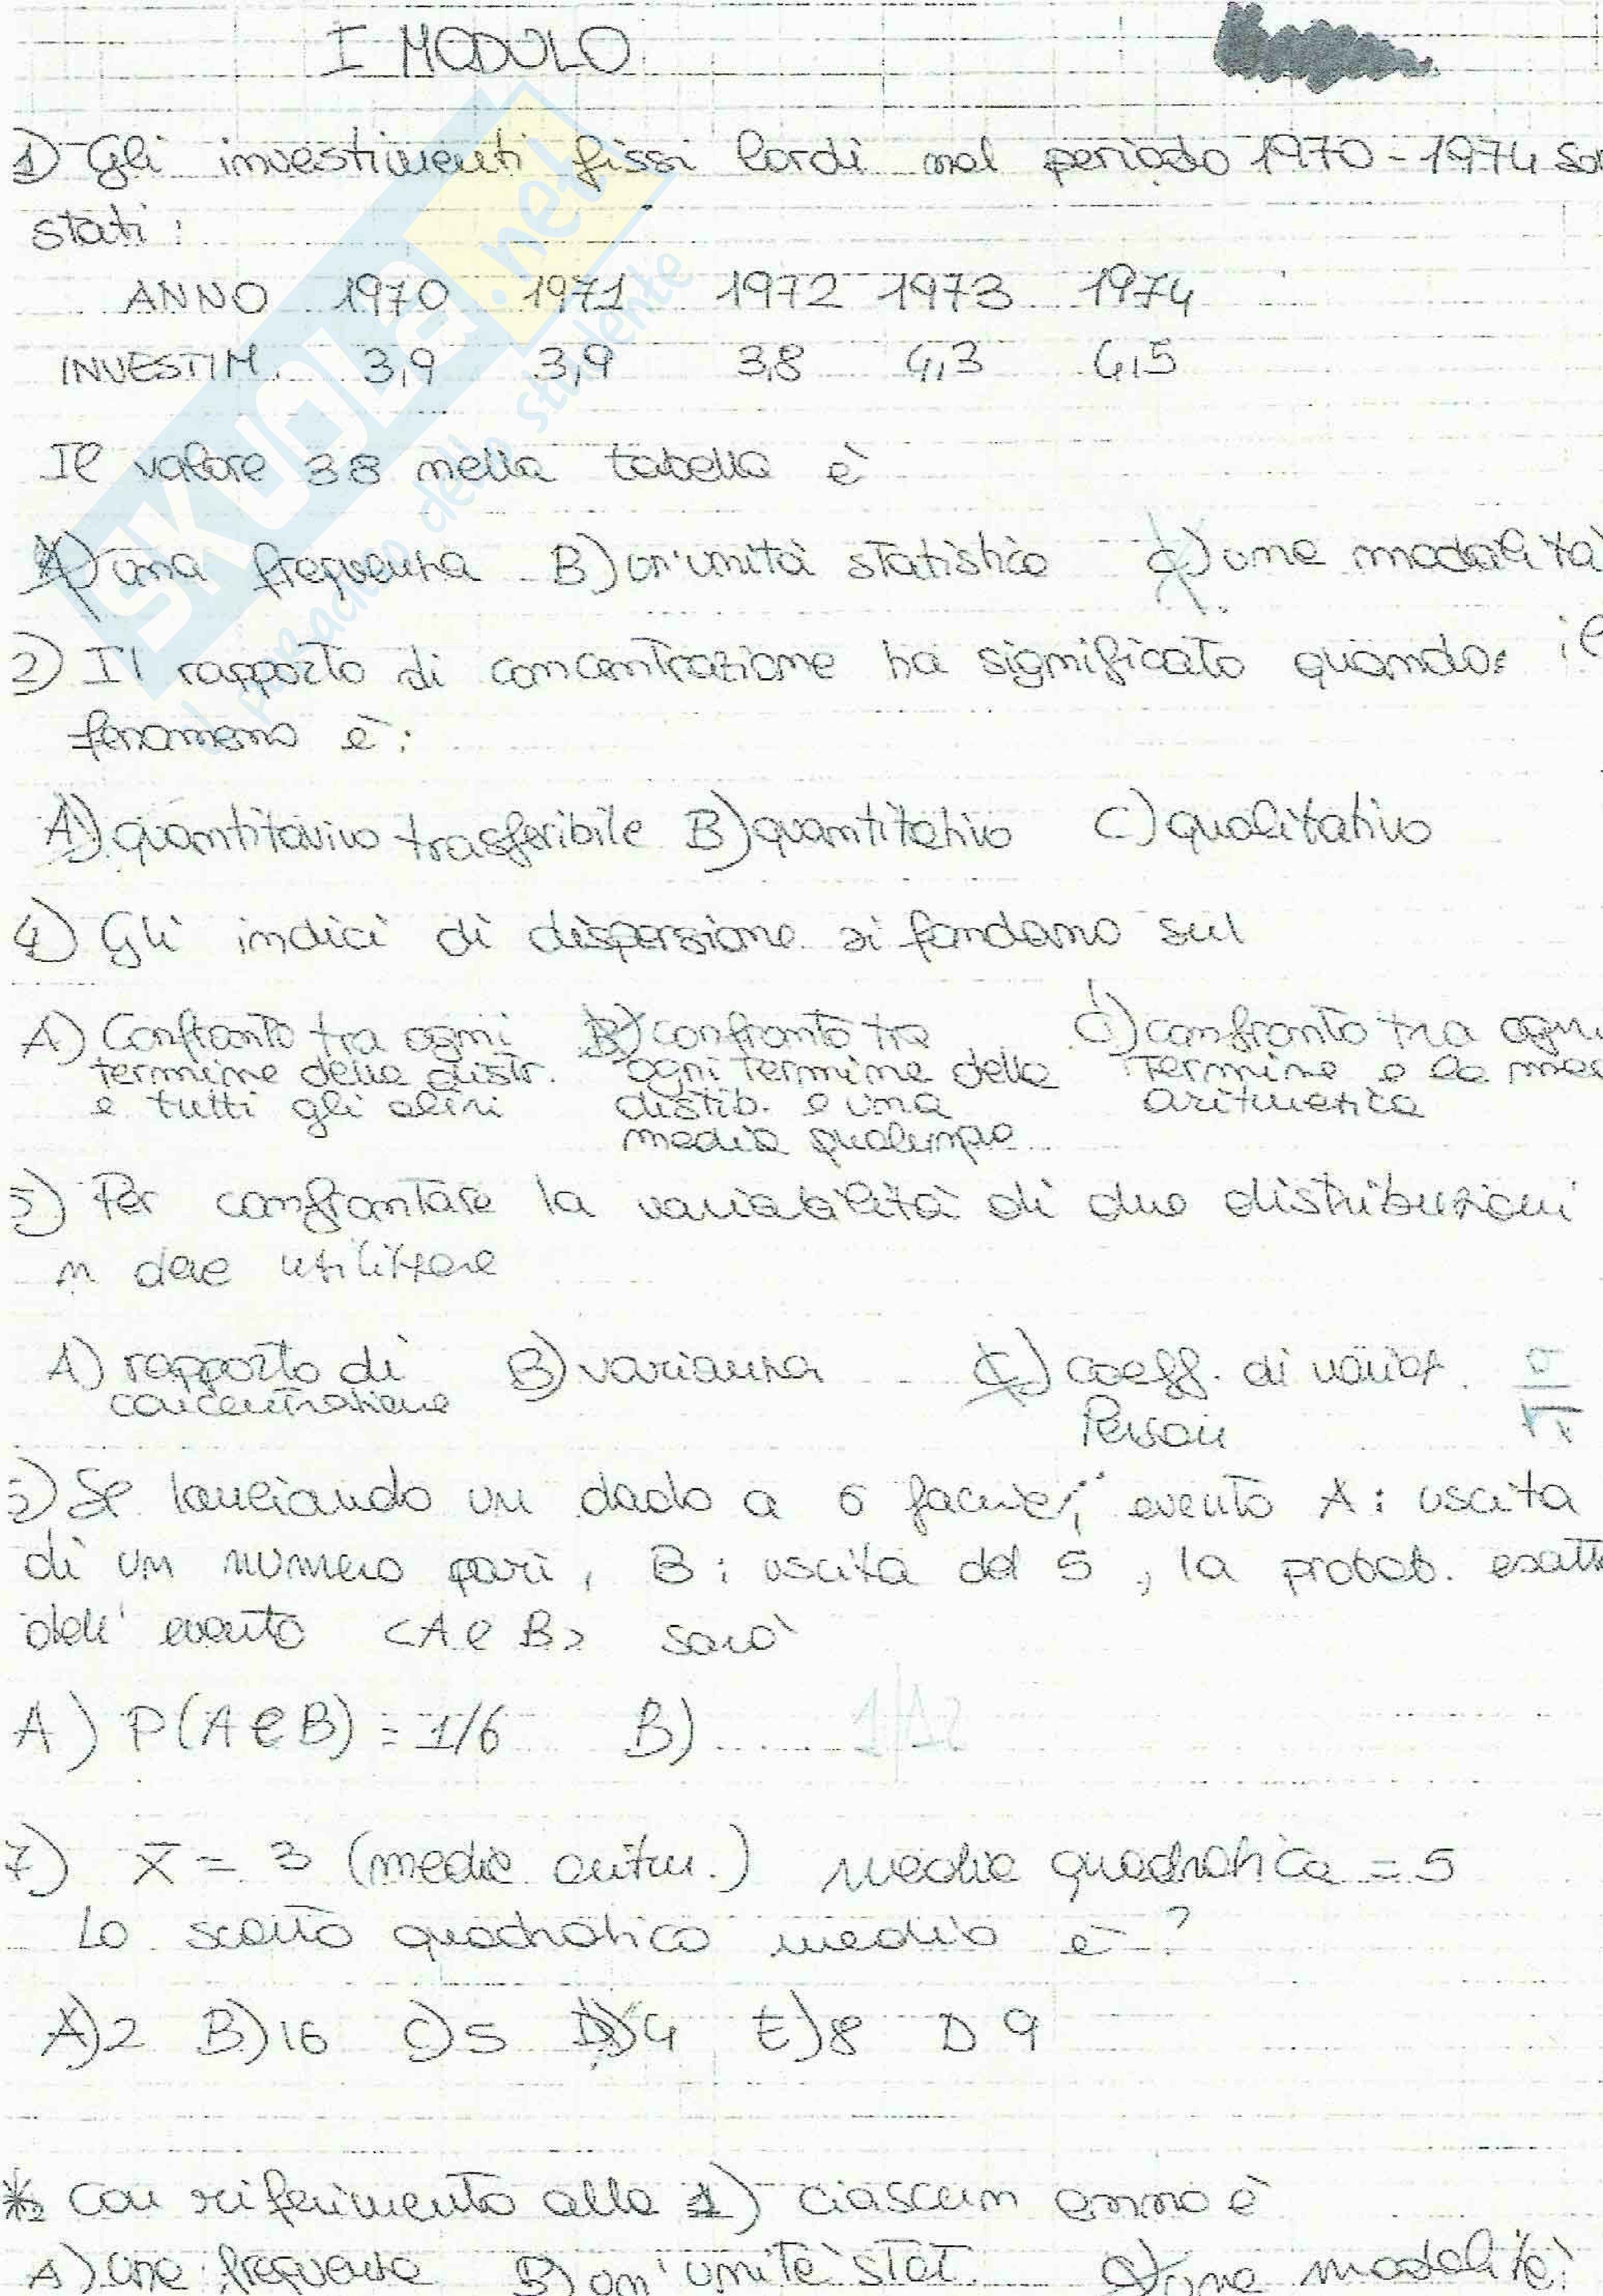 I MODULO
1) Gli investimenti fissi lordi nel periodo 1970-1974 so
stati:
ANNO 1970 1971 1972 1973 1974
INVESTIM. 3,9 3,9 3,8 4,3 4,5
Il valore 38 nella tabella è
A) una frequenza B) un'unità statistica C) una modalità
2) Il rapporto di concentrazione ha significato quando: il
fenomeno è:
A) quantitativo trasferibile B) quantitativo C) qualitativo
4) Gli indici di dispersione si fondano sul
A) Confronto tra ogni B) confronto tra C) confronto tra ogni
termine della distr. ogni termine della termine e la med
e tutti gli altri distrib. e una aritmetica
media qualunque
5) Per confrontare la variabilità di due distribuzioni
si deve utilizzare
A) rapporto di B) varianza C) coeff. di variaz.
concentrazione Persoin
) Se lanciando un dado a 6 facce, evento A: uscita
di un numero pari, B: uscita del 5, la probab. esatt
dell'evento <A e B> sarà
A) P(A e B) = 1/6 B) ...... 1/12
7) x̄ = 3 (media aritm.) media quadratica = 5
Lo scarto quadratico medio è?
A) 2 B) 16 C) 5 D) 4 E) 8 D 9
*2 Con riferimento alla 1) ciascun anno è
A) una frequenza B) un'unità stat. C) una modalità
SKUOLA.net
il paradiso dello studente